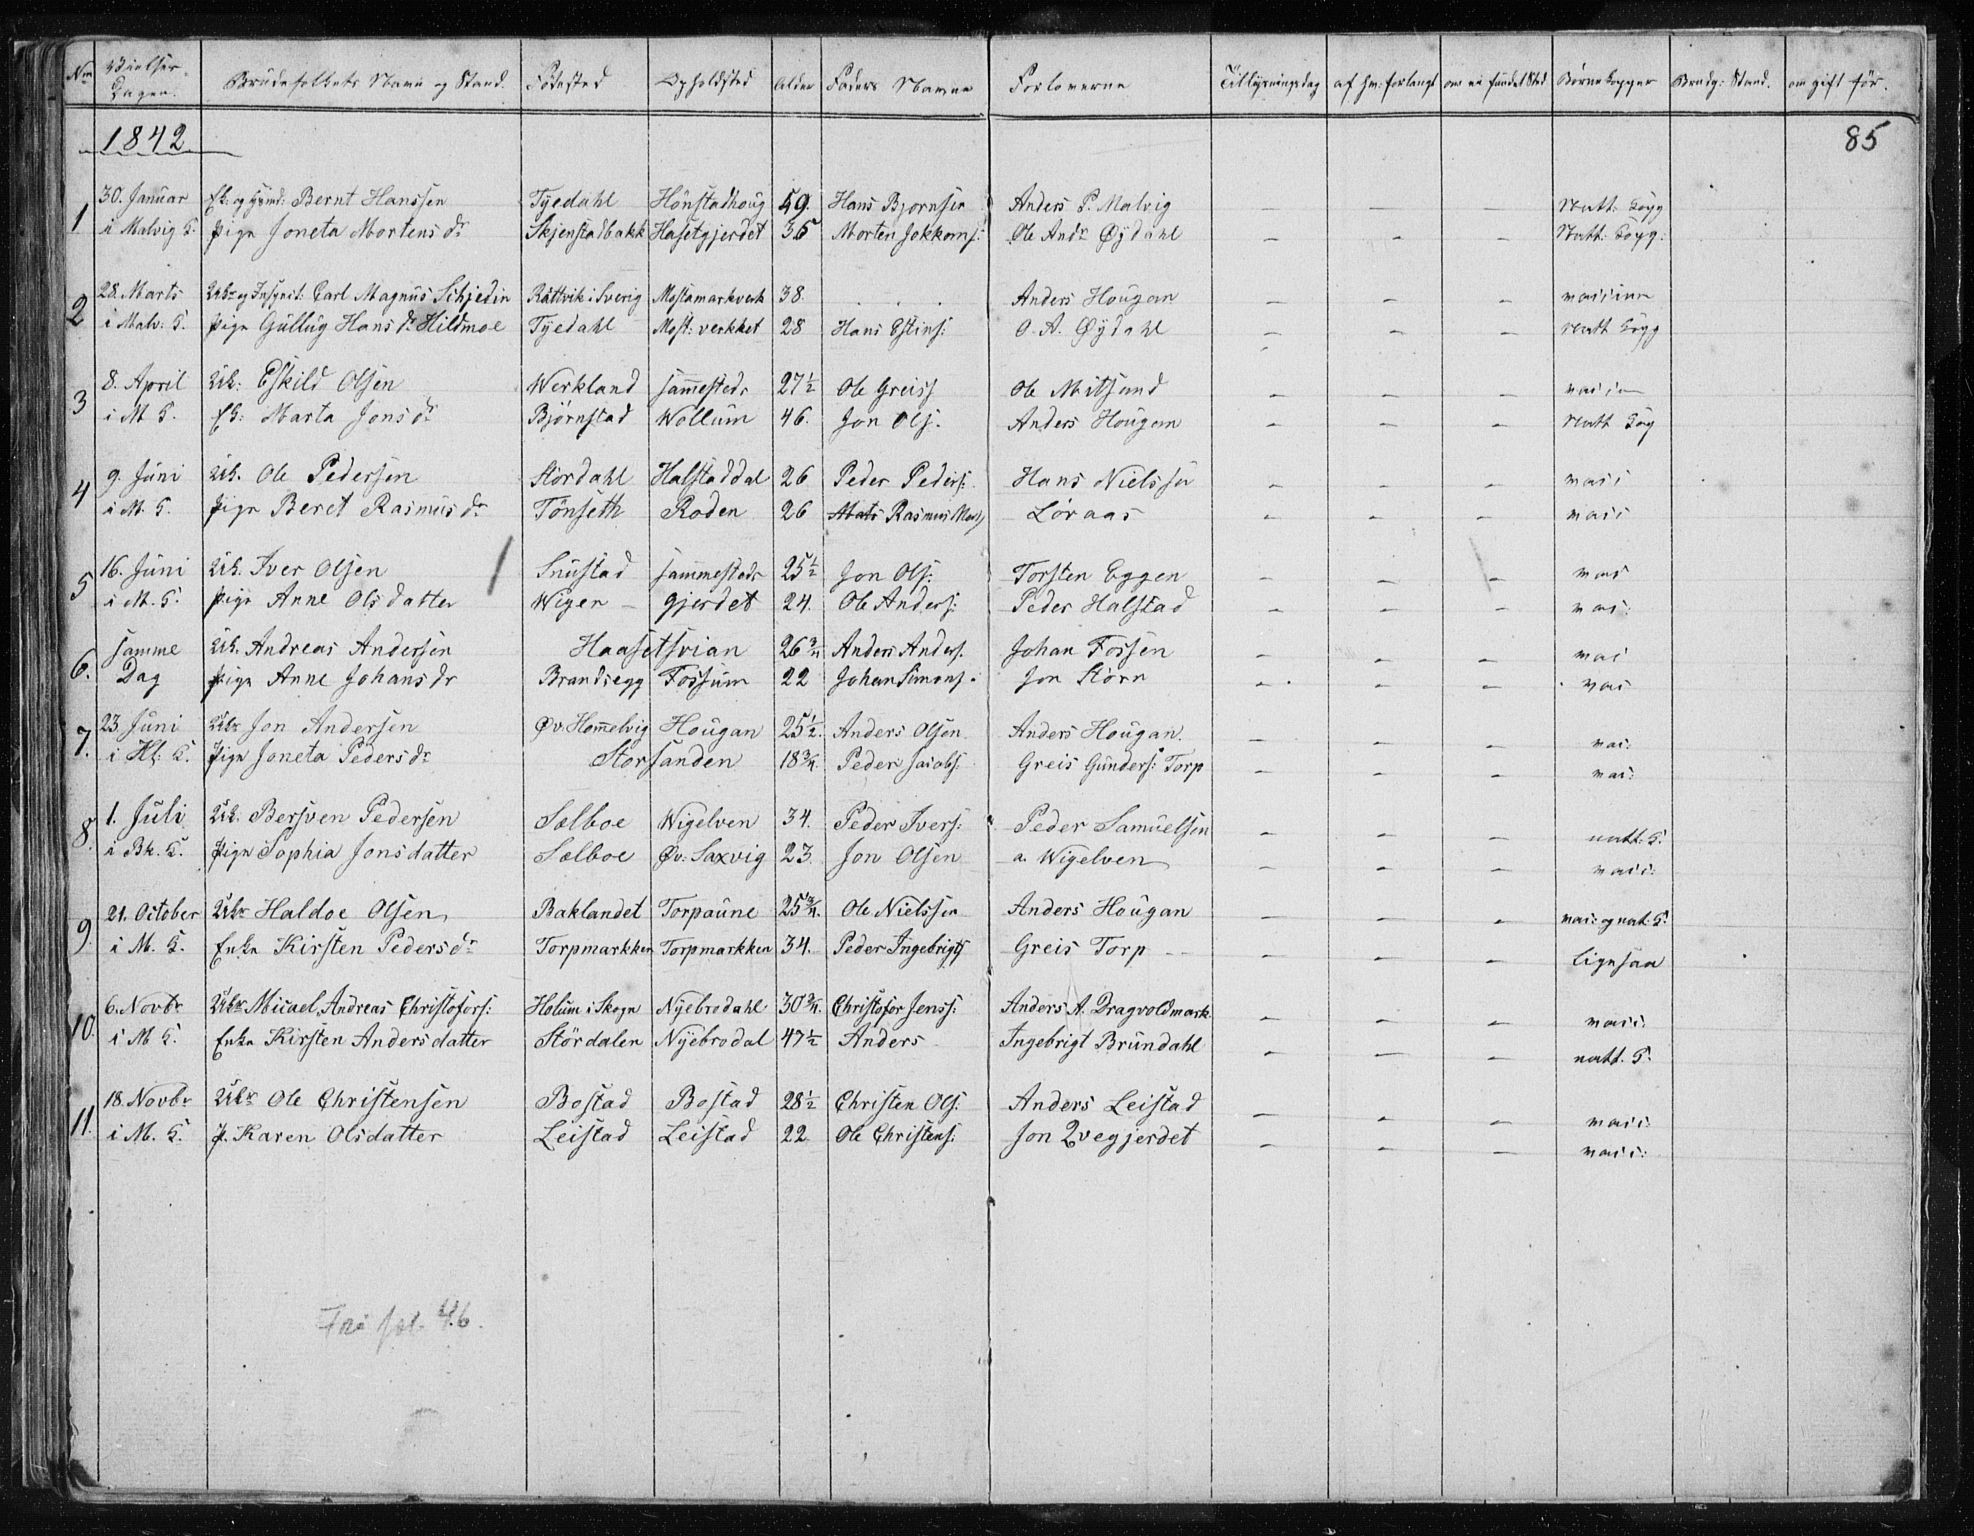 Nr Vielses- Dagen. Brudefolkets Navne og Stand. Födested Opholdsted Alder Faders Navne Forloverne Tillysningsdag af hm: forlangt om en fundet Sted Börnekopper Brudg: Stand. om gift för.
1842 85
1 30. Januar Ek: og Gmd: Bernt Hanssen Tyedahl Hönstadhoug 59. Hans Bjornsen Anders P. Malvig — — — Natt: Kopp
i Malvig K. Pige Joneta Mortens dr Skjenstadbakk Hasetgjerdet 35 Morten Jokkoms: Ole Andr Øydahl — — — Natt: Kopp:
2 28. Marts Ukr og Inspect: Carl Magnus Schjedin Råttvik i Sverig Mostamarkverk 38. . . . Anders Hougan — — — vaccine
i Malv: K. Pige Gullug Hans dr Hildmoe Tyedahl Most: verkket 28 Hans Estens: O. A. Øydahl — — — Natt Kopp
3 8. April Uk: Eskild Olsen Werkland sammesteds 27½ Ole Greiss Ole Mitsund — — — vaccin
i M K. Ek: Marta Jons dr Björnstad Wollum 46. Jon Ols. Anders Hougan — — — Natt Kop
4 9. Juni Uk. Ole Pedersen Stördahl Halstaddal 26 Peder Peders: Hans Nielssen — — — vacc
i M. K. Pige Beret Rasmus dr Tönseth Roden 26 Mats Rasmus Mats Löraas — — — vacc
5 16. Juni Uk. Iver Olsen Snustad sammesteds 25½ Jon Ols: Torsten Eggen — — — vac
i M. K. Pige Anne Olsdatter Wigen — gjerdet 24. Ole Anders: Peder Halstad — — — vac:
6. samme Uk. Andreas Andersen Haasetsvian 26¾ Anders Anders. Johan Fossen — — — vac
Dag Pige Anne Johans dr Brandsegg Fossum 22 Johan Simons. Jon Störn — — — vac
7. 23. Juni Ukr Jon Andersen Øv. Hommelvig Hougan 25½. Anders Olsen Anders Hougan. — — — vac:
i Hl: K. Pige Joneta Peders dr Storsanden 18¾. Peder Jacobs: Greis Gunders: Torp — — — vac:
8. 1. Juli Uk. Bersven Pedersen Sælboe Wigelven 34. Peder Ivers: Peder Samuelsen — — — natt: K.
i Bk. K. Pige Sophia Jonsdatter Sælboe Øv. Saxvig 23. Jon Olsen a. Wigelven — — — vacc:
9. 21. October Ukr Haldoe Olsen Baklandet Torpaune 25¾. Ole Nielssen Anders Hougan — — — vac: og nat. K.
i M. K. Enke Kirsten Peders dr Torpmarkken Torpmarkken 34. Peder Ingebrigts Greis Torp — — — ligesaa
10. 6. Novbr Ukr Micael Andreas Christofors: Holum i Skogn Nyebrodahl 30¾. Christofor Jenss: Anders A. Dragvoldmark. — — — vacc:
i M K. Enke Kirsten Andersdatter Stördalen Nyebrodal 47½ Anders Ingebrigt Brundahl — — — natt. K.
11. 18. Novbr Ukr Ole Christensen Bostad Bostad 28½ Christen Ols: Anders Leistad — — — vacc:
i M. K. P. Karen Olsdatter Leistad Leistad 22. Ole Christens: Jon Qvegjerdet — — — vacc:
Fra fol. 46.